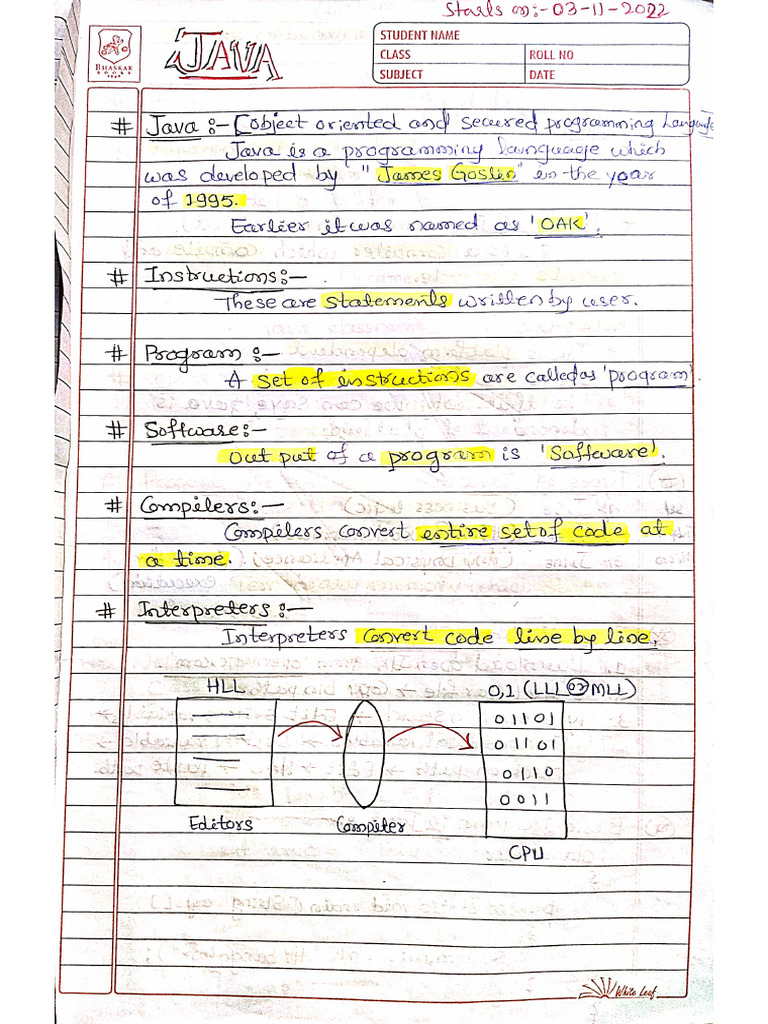 Starts on:- 03-11-2022
BHASKAR
BOOKS
JAVA
STUDENT NAME
CLASS
ROLL NO
SUBJECT
DATE
# Java :- [object oriented and secured programming Language
Java is a programming language which
was developed by "James Goslin" in the year
of 1995.
Earlier it was named as 'OAK'.
# Instructions:-
These are statements written by user.
# Program :-
A set of instructions are called as 'program'.
# Software:-
Out put of a program is 'Software'.
# Compilers:-
Compilers convert entire set of code at
a time.
# Interpreters :-
Interpreters convert code line by line.
HLL
0,1 (LLL or MLL)
01101
01101
0110
0011
Editors
Compiler
CPU
White Leaf